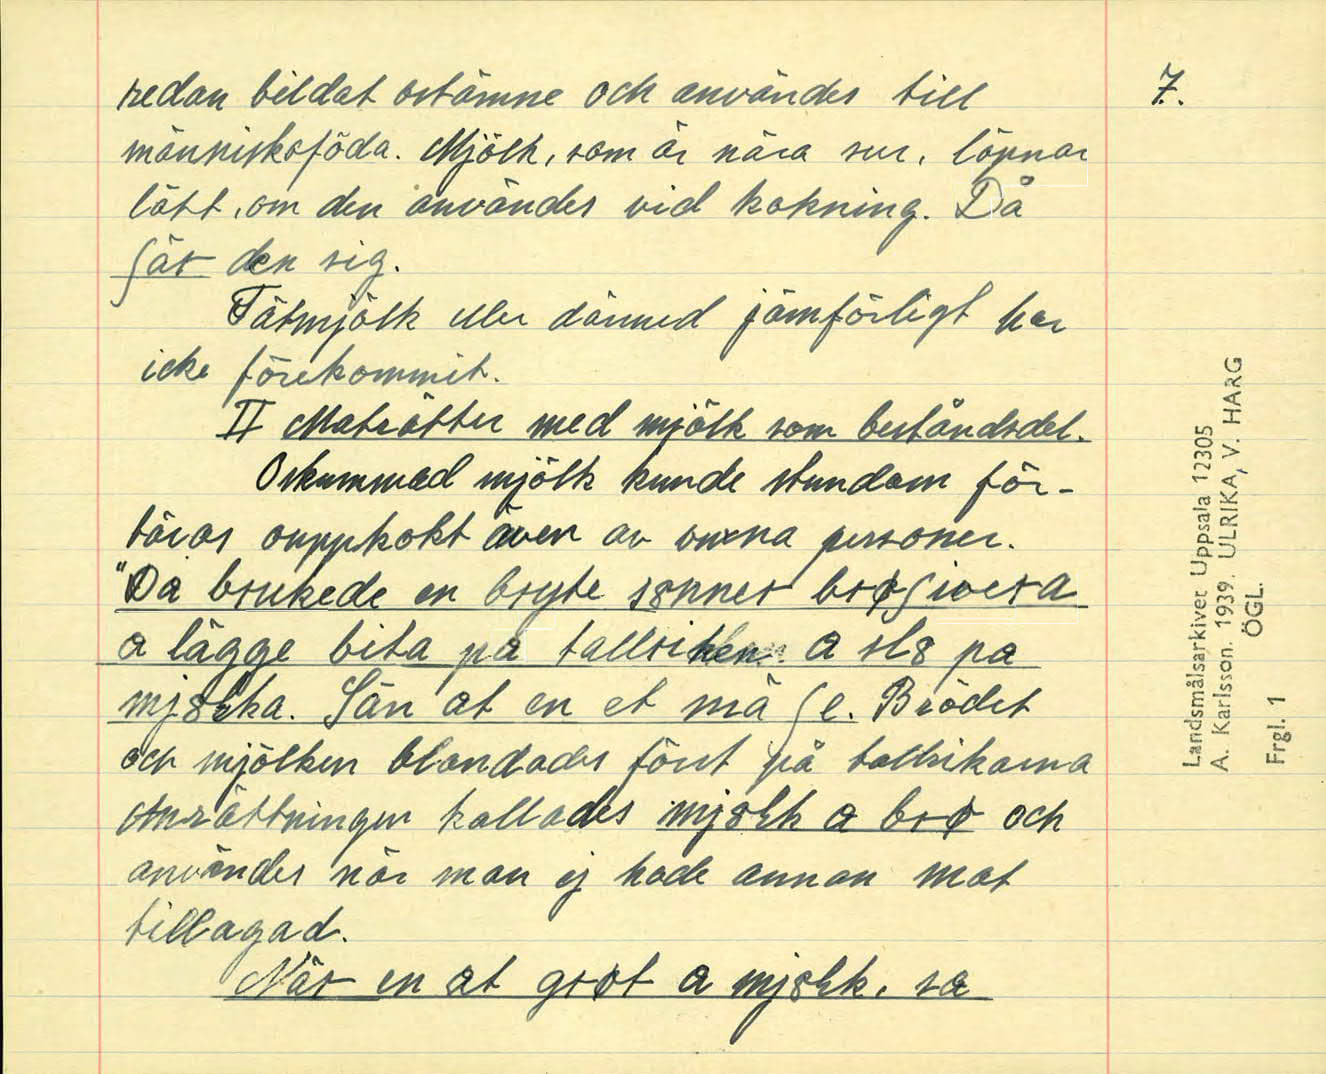 redan bildat ostämne och användes till
människoföda. Mjölk, som är nära sur, löpnar
lätt, om den användes vid kokning. Då
ʃär den sig.
Tätmjölk eller därmed jämförligt har
icke förekommit.
II Maträtter med mjölk som beståndsdel.
Oskummad mjölk kunde stundom för-
täras ouppkokt även av vuxna personer.
"Då brukede en bryte sönner brøʃivera
a lägge bita på tallriken a slȣ pa
mjȣlka. Sän at en et mä ʃe. Brödet
och mjölken blandades först på tallrikarna
Anrättningen kallades mjȣlk a brø och
användes när man ej hade annan mat
tillagad.
När en at grøt a mjȣlk, sa
7.
Landsmålsarkivet Uppsala 12305
A. Karlsson. 1939. ULRIKA, V. HARG
ÖGL.
Frgl. 1